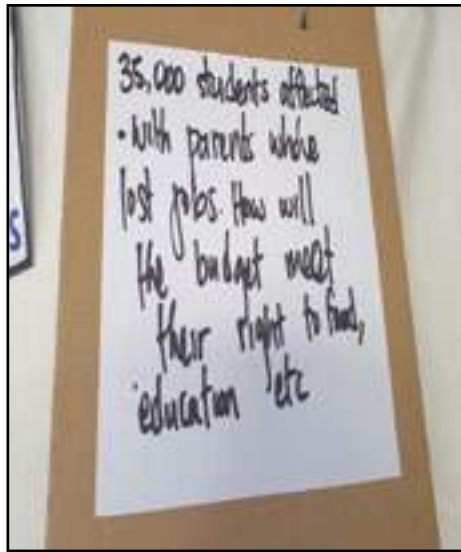 35,000 students affected
• with parents who've
lost jobs. How will
the budget meet
their right to food,
education etc
S